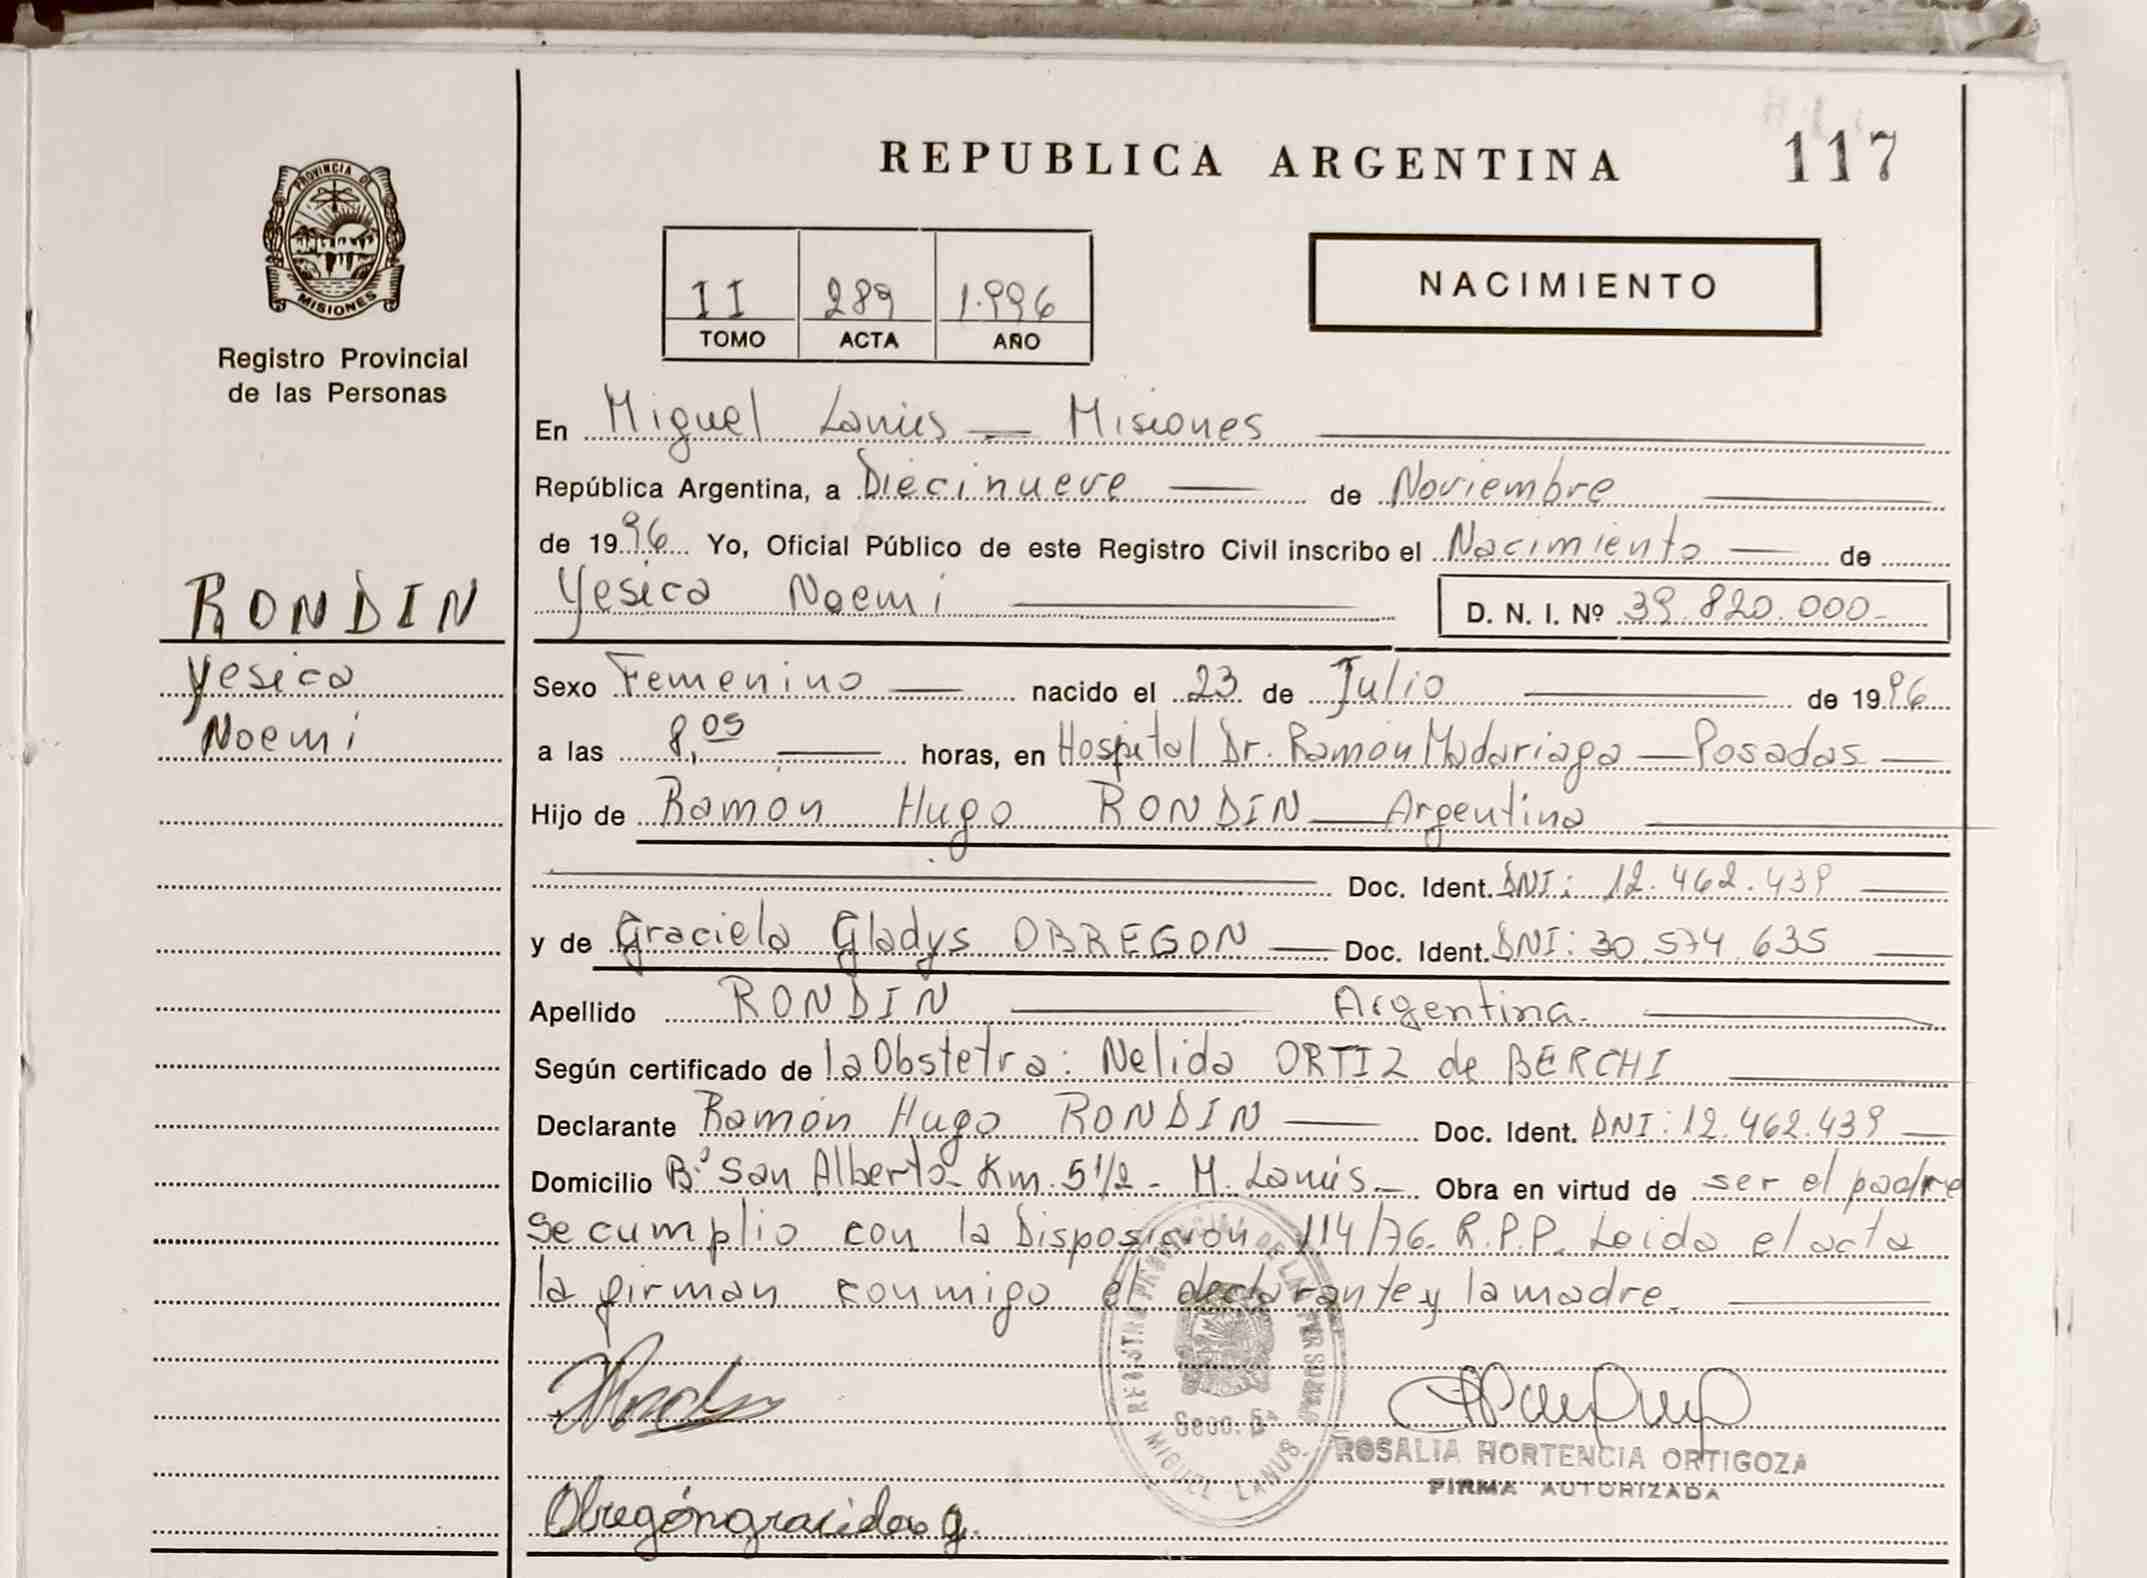 REPUBLICA ARGENTINA
117
PROVINCIA DE
MISIONES
Registro Provincial
de las Personas
II 289 1.996
TOMO ACTA AÑO
NACIMIENTO
En Miguel Lanús — Misiones
República Argentina, a Diecinueve — de Noviembre
de 1996 Yo, Oficial Público de este Registro Civil inscribo el Nacimiento — de
RONDIN
Yesica Noemi
Yesica Noemi — D. N. I. Nº 39.820.000-
Sexo Femenino — nacido el 23 de Julio — de 1996
a las 8,05 — horas, en Hospital Dr. Ramón Madariaga — Posadas —
Hijo de Ramon Hugo RONDIN — Argentino
Doc. Ident. DNI: 12.462.439 —
y de Graciela Gladys OBREGON — Doc. Ident. DNI: 30.574.635 —
Apellido RONDIN — Argentina.
Según certificado de la Obstetra: Nelida ORTIZ de BERCHI
Declarante Ramón Hugo RONDIN — Doc. Ident. DNI: 12.462.439 —
Domicilio Bº San Alberto - Km. 5 1/2 - M. Lanús. — Obra en virtud de ser el padre
Se cumplio con la Disposición 114/76. R.P.P. Leida el acta
la firman conmigo el declarante y la madre.
Secc. 5ª
MIGUEL LANUS
ROSALIA HORTENCIA ORTIGOZA
FIRMA AUTORIZADA
Obregón graciela g.